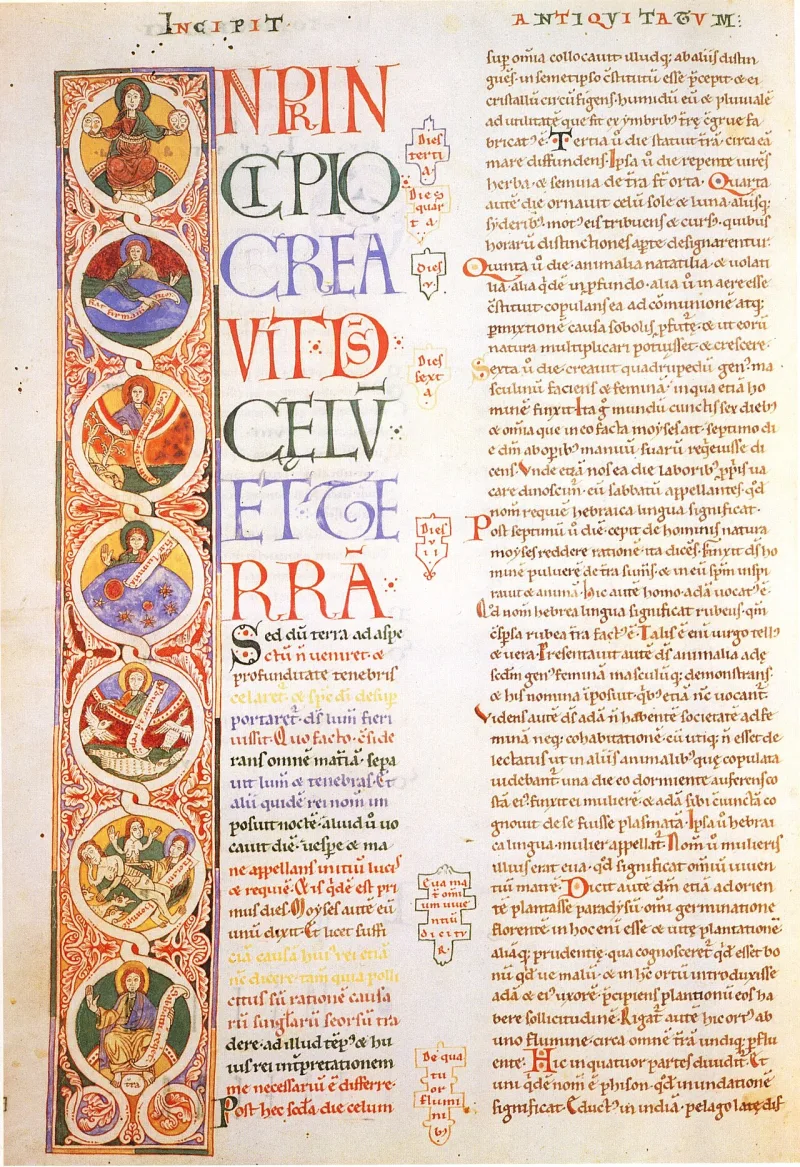 INCIPIT·
ANTIQUITATUM:
N PRIN
CIPIO
CREA
VIT·D̄S
CĘLV̄
ET TE
RRĀ·
Sed dū terra ad aspe
ctū n̄ veniret· &
profunditate tenebris
celaret· & sp̄c dī desup
portaret· ds̄ lum̄ fieri
iussit· Quo facto· c̄side
rans omne matīa· sepa
uit lum̄ & tenebras· Et
alii quidē rei nom̄ im
posuit noctē· aliud ū uo
cauit diē· uesp̄e & ma
ne appellans initiū lucis
& requiē· & is qd̄e est pri
mus dies· Moyses autē eū
unū dixit· Et licet suffi
ciā causā hui' rei etiā
nc̄ dicere· tam̄ quia polli
citus sū rationē causa
rū singl̄arū seorsū tra
dere· ad illud tēp' & hu
ius rei īnterpretationem
me necessariū ē differre·
Post hec scd̄a die celum
Dies
terti
a·
Dies
quar
ta·
Dies
v·
Dies
sexta
Dies
vii
Eua ma
t̄ omi
um uiue
ntiū
dicit̄
De qua
tu
or
flumi
nib'
sup omīa collocauit illudq; ab aliis distin
guēs· in semetipso c̄stitutū esse p̄cepit· & ei
cristallū circūfigens· humidū eū & pluuialē
ad utilitatē que fit ex ymbrib' t̄rę c̄grue fa
bricat' ē· Tertia ū die statuit t̄rā· circa eā
mare diffundens· Ipsa ū die repente uirēs
herbę & semina de t̄ra s̄t orta· Quarta
autē die ornauit celū sole & luna· aliisq;
syderib'· mot' eis tribuens & curs'· quibus
horarū distinctiones aperte designarentur·
Quinta ū die· animalia natatilia· & uolati
lia· alia qd̄e in p̄fundo· alia ū in aere esse
c̄stituit· copulans ea ad cōmunionē atq;
p̄mixtionē causa sobolis p̄ferēde· ut eorū
natura multiplicari potuisset & crescere·
Sexta ū die· creauit quadrupedū gen'· ma
sculinū faciens & feminā· in qua etiā ho
minē finxit· Itaq; mundū cunctis sex dieb'
& omīa que in eo facta moyses ait· septimo di
e dm̄ ab oꝑib' manuū suarū requieuisse di
cens· Vnde etiā nos ea die laborib' ꝓpriis ua
care dinoscim'· eū sabbatū appellantes· qd̄
nom̄ requiē hebraica lingua significat·
Post septimū ū diē· cepit de hominis natura
moyses reddere rationē· ita dicēs· Finxit ds̄ ho
minē puluerē de t̄ra sum̄s· & in eū sp̄m inspi
rauit & animā· Hic autē homo· adā uocat' ē·
Qd̄ nom̄ hebrea lingua significat rubeus· qm̄
c̄sp̄sa rubea t̄ra fact' ē· Talis ē eni uirgo tell'
& uera· P̄resentauit autē ds̄ animalia adę
scdm̄ gen' feminā masculūq; demonstrans·
& his nomina iposuit· qb' etiā nc̄ uocant̄
Videns autē ds̄ adā n̄ habentē societatē ad fe
minā neq; cohabitationē· cū utiq; n̄ esset de
lectatus ut in aliis animalib' quę copulata
uidebant̄ una die eo dormiente auferens co
stā ei'· finxit ei mulierē· & adā sibi cūnctā co
gnouit de se fuisse plasmatā· Ipsa ū hebrai
ca lingua· mulier appellat̄· Nom̄ ū mulieris
illius erat eua· qd̄ significat omiū uiuen
tiū matrē· Dicit autē dm̄ etiā ad orien
tē plantasse paradysū· omī germinatione
florente· in hoc eni esse & uitę plantationē·
aliāq; prudentię· qua cognosceret̄ qd̄ esset bo
nū qd̄ ue malū· & in hc̄ ortū introduxisse
adā & ei' uxorē· p̄cipiens plantionū eos ha
bere sollicitudinē· Rigat̄ autē hic ort' ab
uno flumine· circa omnē t̄rā undiq; ꝑflu
ente· Hic in quatuor partes diuidit̄· Et
uni qd̄e nom̄ ē phison· qd̄ inundationē
significat· Educt' in indiā· pelago late dif